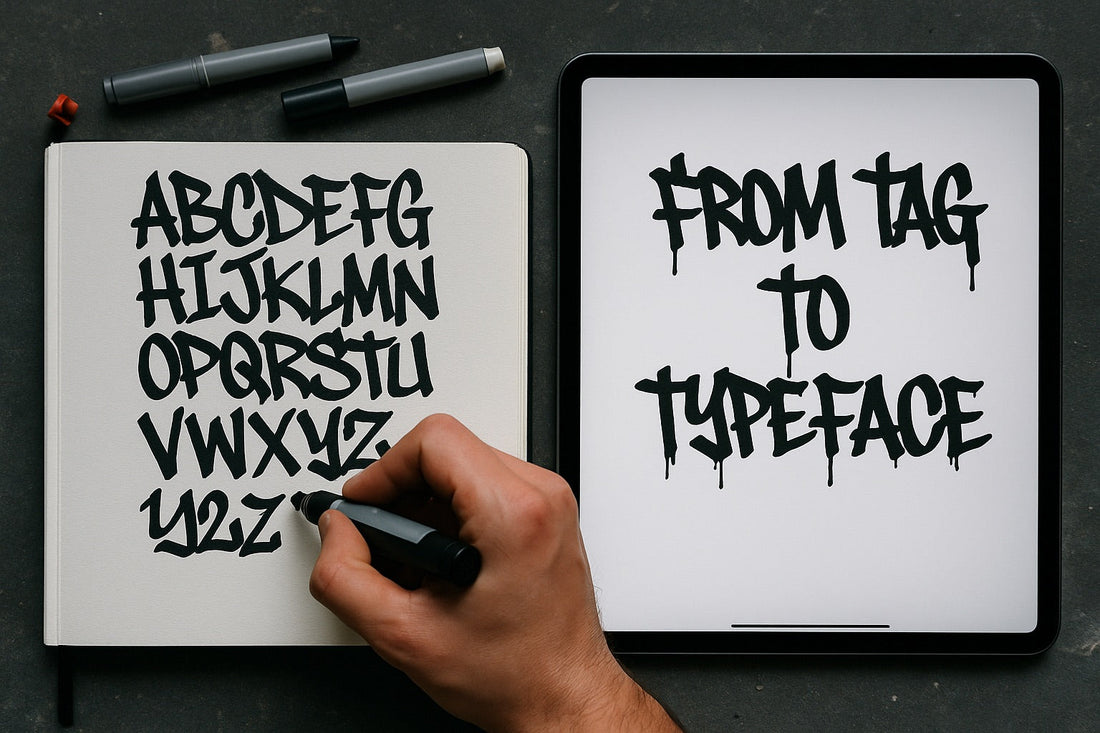 ABCDEFG
HIJKLMN
OPQRSTU
VWXYZ
Y2Z
FROM TAG
TO
TYPEFACE